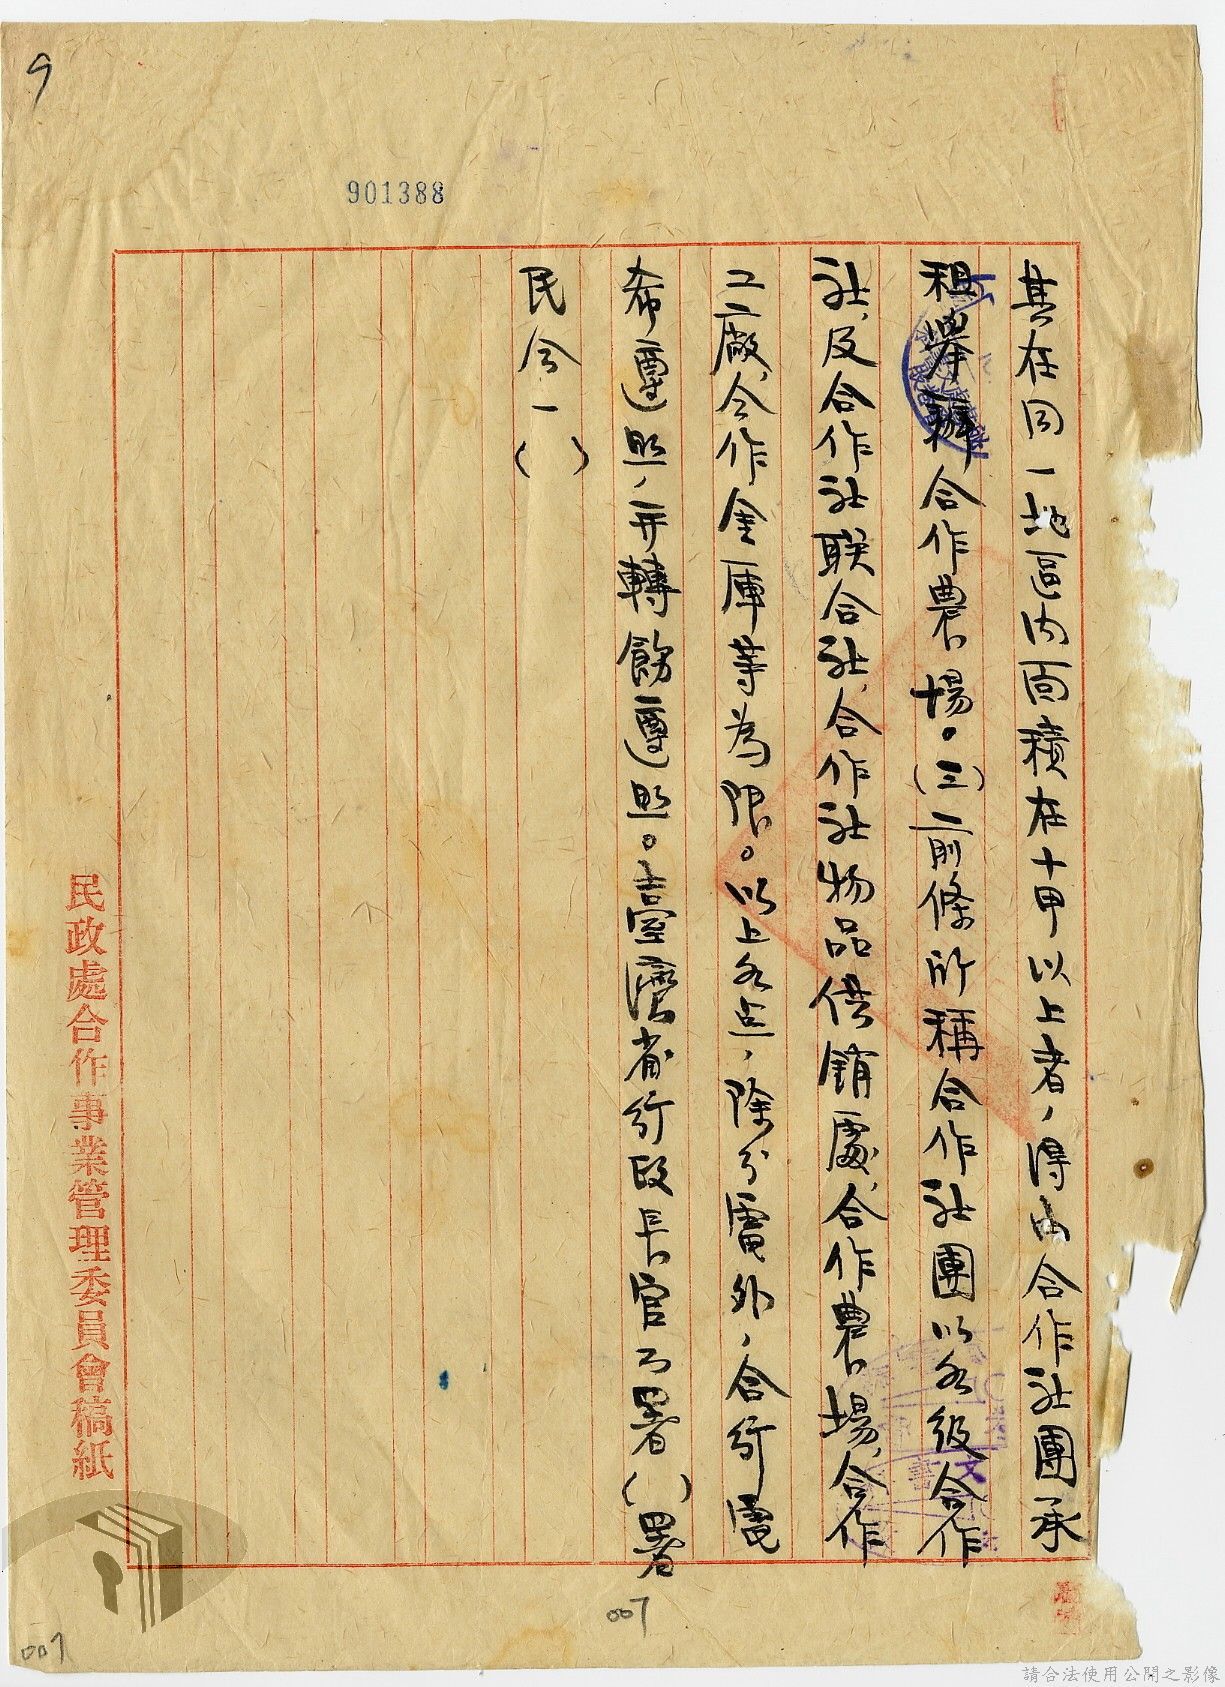 9
901388
其在同一地區内面積在十甲以上者，得由合作社團承
租舉辦合作農場。(三)前條所稱合作社團以各級合作
社、及合作社联合社、合作社物品供銷處、合作農場、合作
工廠、合作金庫等為限。以上各点，除分電外，合行電
希遵照，并轉飭遵照。臺灣省行政長官公署()署
民合一()
民政處合作事業管理委員會稿紙
007
007
請合法使用公開之影像